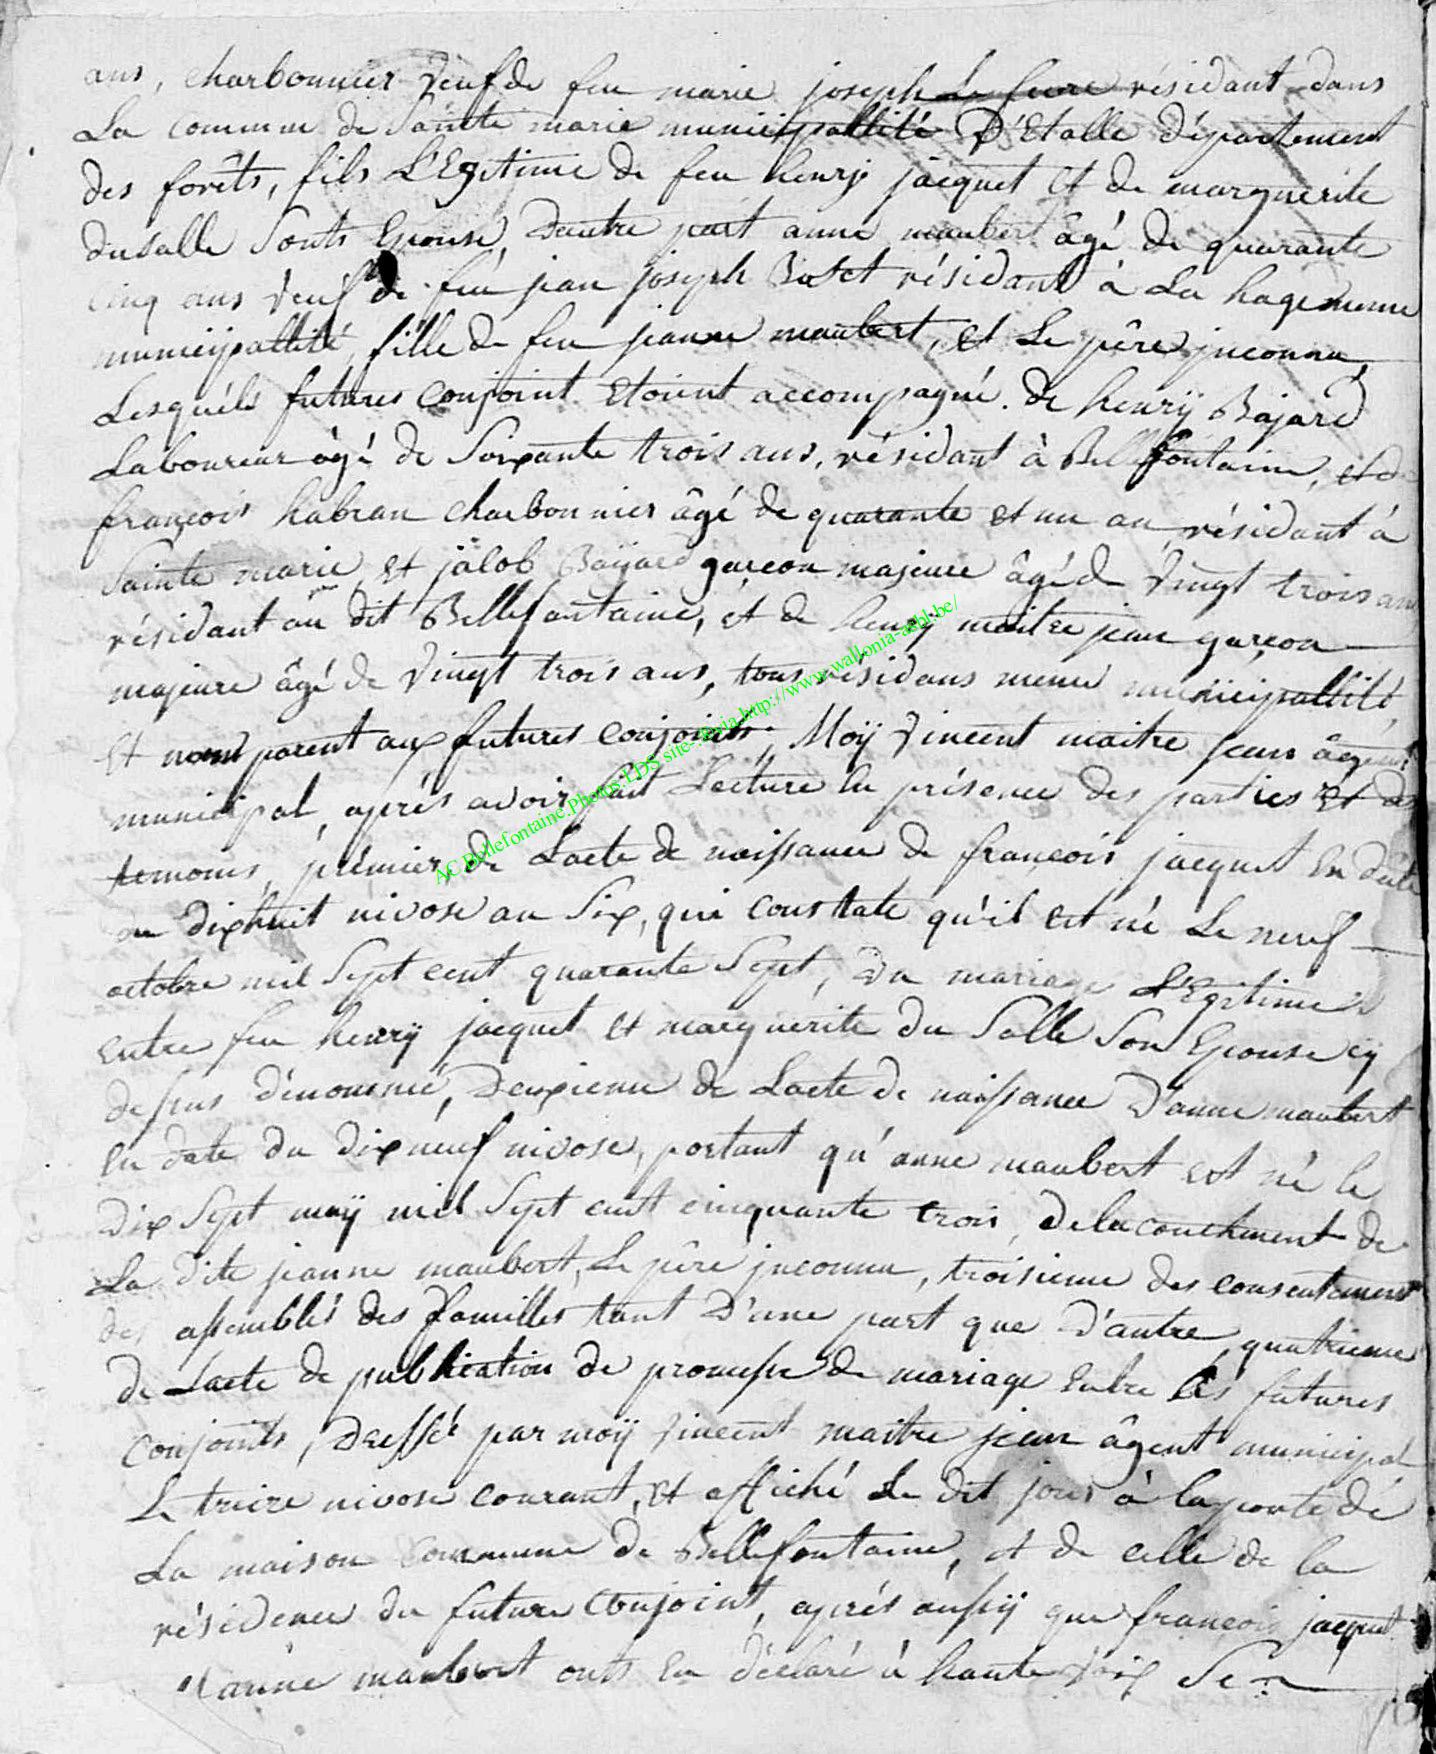 ans, charbonnier veuf de feu marie joseph Le fevre résidant dans
La commune de Sainte marie municipallité D'Etalle département
des forêts, fils L'Egitime de feu henrÿ jacquet et de marguerite
dusalle Sonts Epouse, Dautre part anne maubert âgé de quarante
cinq ans veuf de feu jean joseph résidant à La hage meme
municipallité, fille de feu jeanne maubert, et Le pêre jnconnu,
Lesquéls futures conjoint Etoient accompagné de henrÿ Bajard
Laboureur âgé de Soixante trois ans, résidant à Bellefontaine, et de
françois habran charbonnier âgé de quarante et un an résidant à
Sainte marie, et jacob Baijard garçon majeure âgé de vingt trois ans
résidant au dit Bellefontaine, et de henrÿ maitre jean garçon
majeure âgé de vingt trois ans, tous résidans meme municipallité,
Et nom parent aux futures conjoints, Moÿ vincent maitre jean âgent
municipal, aprés avoir fait Lecture En présence des parties et des
temoins, prémier, de Lacte de naissance de françois jacquet En date
du dixhuit nivose an Six, qui constate qu'il est né Le neuf
octobre mil Sept cent quarante Sept, du mariage L'Egitime
Entre feu henrÿ jacquet et marguérite du Salle Son Epouse cÿ
dessus dénommé, Deuxieme de Lacte de naissance D'anne maubert
En date du dix neuf nivose, portant qu'anne maubert est né le
Dix Sept maÿ mil Sept cent cinquante trois, de lacouchement de
La dite jeanne maubert, Le pêre jnconnu, troisieme des consentement
des assemblés des familles tant D'une part que D'autre, quatrieme
de Lacte de publication de promesse de mariage Entre les futures
conjoints, Dressée par moÿ vincent maitre jean âgent municipal
Le treize nivose courant, et affiché Le dit jour à la porte de
La maison commune de Bellefontaine, et de celle de la
résidence du future conjoint, aprés aussÿ que françois jacquet
et anne maubert onts En déclaré à haute voix Se
AC.Bellefontaine.Photos.LDS site-.Feria http://www.wallonia-asbl.be/